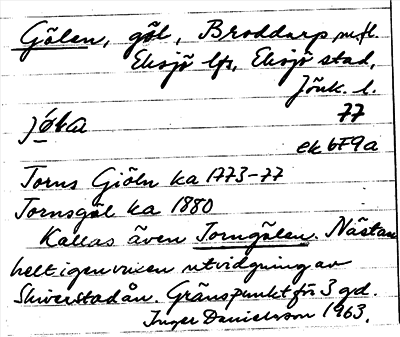 Gölen, göl, Broddarp m.fl.
Eksjö lfs, Eksjö stad,
Jönk. l.
77
jö́ḷa
ek 6F9a
Torns Giöln ka 1773-77
Tornsgöl ka 1880
Kallas även Torngölen. Nästan
helt igenvuxen utvidgning av
Skiverstadån. Gränspunkt för 3 gd.
Inger Danielsson 1963.